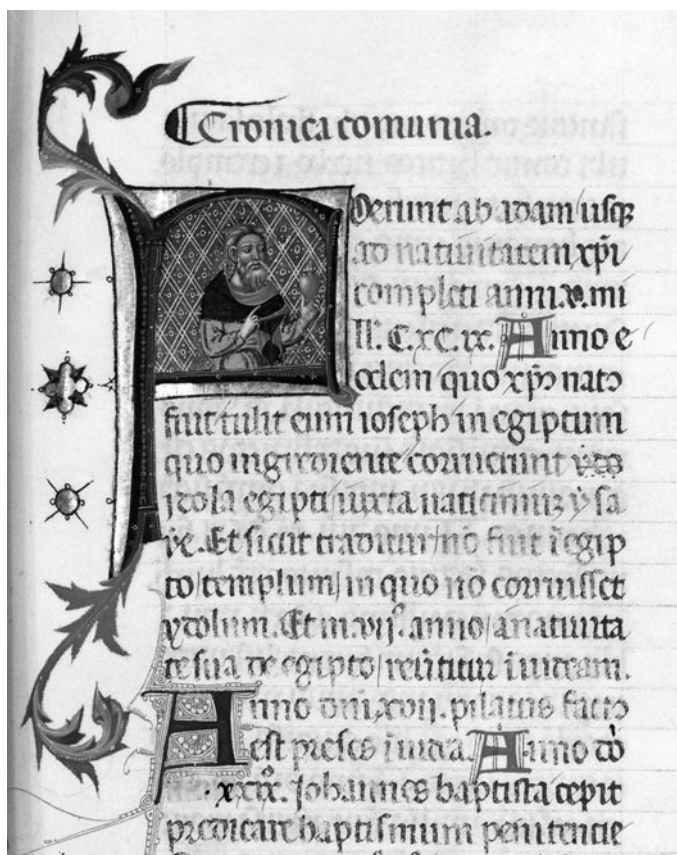 Cronica comunia.
Fuerunt ab adam usqȝ
ad natiuitatem xp̄i
completi anni.v.mi
ll'. C.xC.ix. Anno e
odem quo xp̄s natꝰ
fuit tulit eum ioseph in egiptum
quo ingrediente corruerunt
ydola egipti iuxta uaticiniuȝ ysa
ye. Et sicut traditur nō fuit ī egip
to templum in quo nō corruisset
ydolum. Et in.vij.º anno a natiuita
te sua de egipto reu̅titur ī iudeam.
Anno dn̄i.xvij. pilatus factꝰ
est preses iudea. Anno dō
.xxix. Johannes baptista cepit
predicare baptismum penitentie